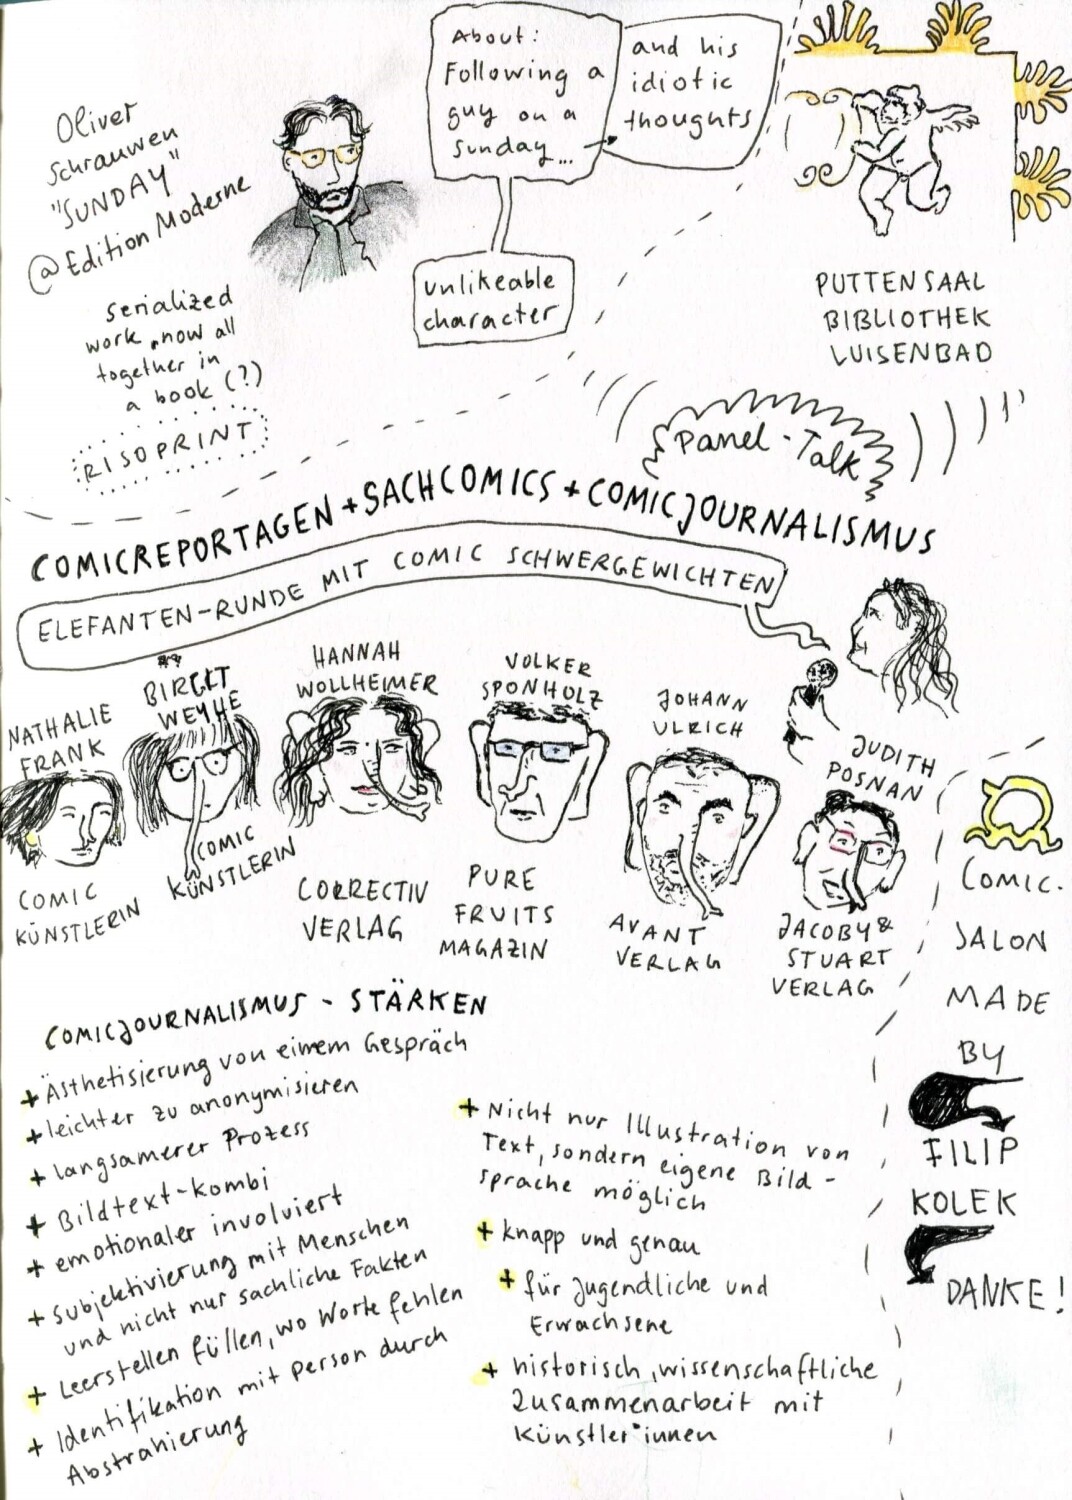 Oliver
Schrauwen
"SUNDAY"
@ Edition Moderne
serialized
work, now all
together in
a book (?)
RISOPRINT
About:
Following a
guy on a
Sunday...
and his
idiotic
thoughts
unlikeable
character
PUTTENSAAL
BIBLIOTHEK
LUISENBAD
Panel-Talk
COMICREPORTAGEN + SACHCOMICS + COMICJOURNALISMUS
ELEFANTEN-RUNDE MIT COMIC SCHWERGEWICHTEN
NATHALIE
FRANK
COMIC
KÜNSTLERIN
BIRGIT
WEYHE
COMIC
KÜNSTLERIN
HANNAH
WOLLHEIMER
CORRECTIV
VERLAG
VOLKER
SPONHOLZ
PURE
FRUITS
MAGAZIN
JOHANN
ULRICH
AVANT
VERLAG
JUDITH
POSNAN
JACOBY &
STUART
VERLAG
COMIC.
SALON
MADE
BY
FILIP
KOLEK
DANKE!
COMICJOURNALISMUS - STÄRKEN
+ Ästhetisierung von einem Gespräch
+ leichter zu anonymisieren
+ langsamerer Prozess
+ Bildtext-Kombi
+ emotionaler involviert
+ Subjektivierung mit Menschen
und nicht nur sachliche Fakten
+ Leerstellen füllen, wo Worte fehlen
+ Identifikation mit Person durch
Abstrahierung
+ Nicht nur Illustration von
Text, sondern eigene Bild-
sprache möglich
+ knapp und genau
+ für Jugendliche und
Erwachsene
+ historisch, wissenschaftliche
Zusammenarbeit mit
Künstler*innen